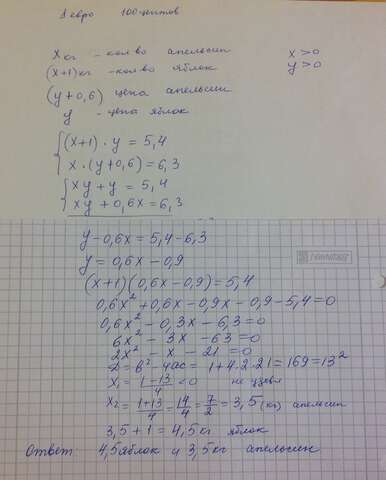 1 евро 100 центов
x кг - кол во апельсин x > 0
(x+1) кг - кол во яблок y > 0
(y+0,6) цена апельсин
y - цена яблок
{(x+1)·y = 5,4
x·(y+0,6) = 6,3
{xy + y = 5,4
xy + 0,6x = 6,3
y - 0,6x = 5,4 - 6,3
y = 0,6x - 0,9
(x+1)(0,6x - 0,9) = 5,4
0,6x² + 0,6x - 0,9x - 0,9 - 5,4 = 0
0,6x² - 0,3x - 6,3 = 0
6x² - 3x - 63 = 0
2x² - x - 21 = 0
D = b² - 4ac = 1 + 4·2·21 = 169 = 13²
x₁ = (1-13)/4 < 0 не удовл
x₂ = (1+13)/4 = 14/4 = 7/2 = 3,5 (кг) апельсин
3,5 + 1 = 4,5 кг яблок
Ответ 4,5 яблок и 3,5 кг апельсин